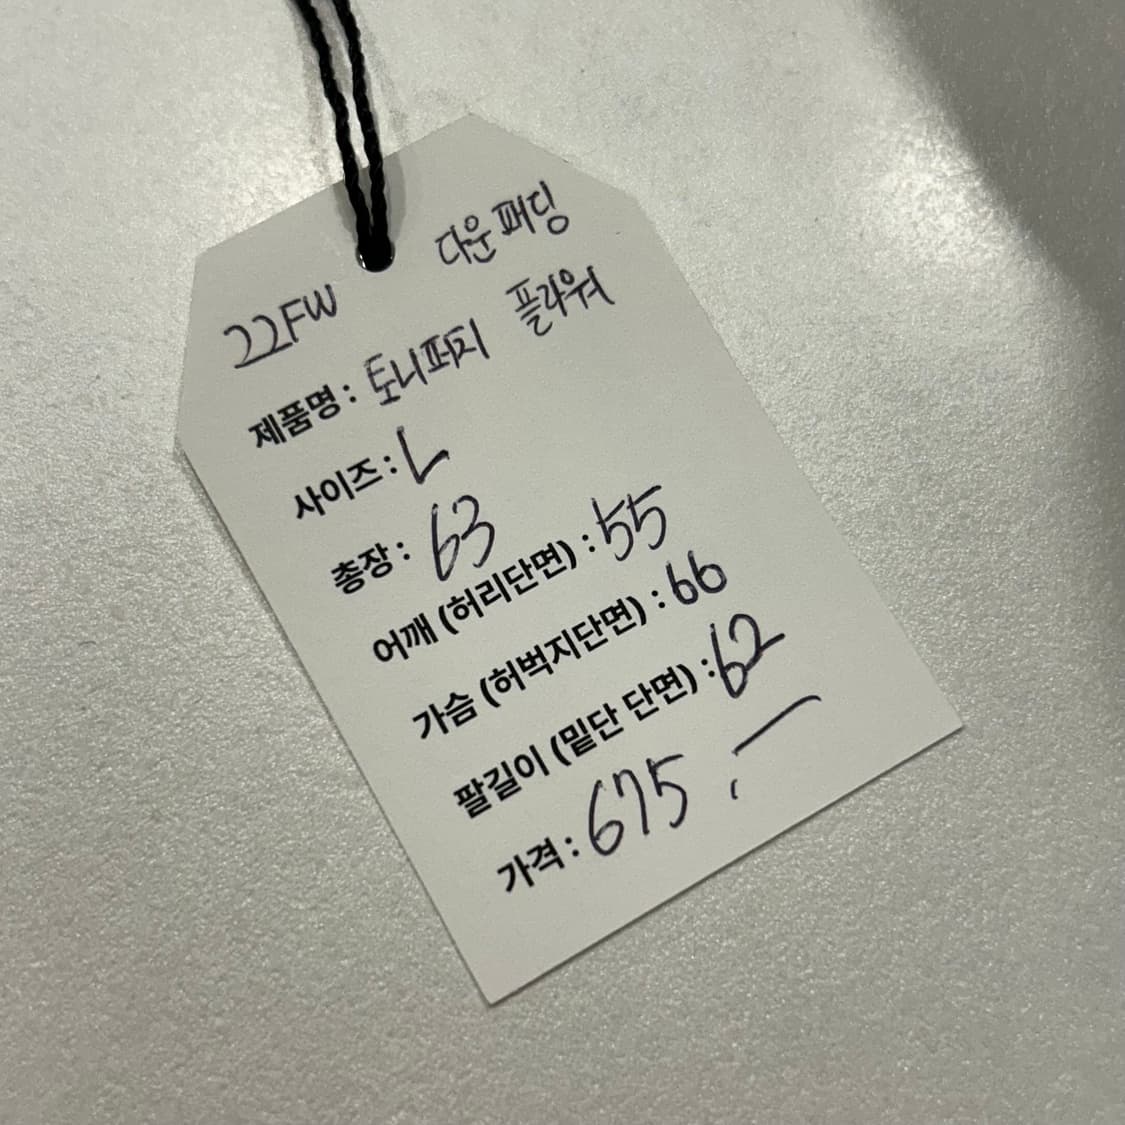 다운패딩
22FW
제품명 : 토니퍼지 플라워
사이즈 : L
총장 : 63
어깨 (허리단면) : 55
가슴 (허벅지단면) : 66
팔길이 (밑단 단면) : 62
가격 : 675,—